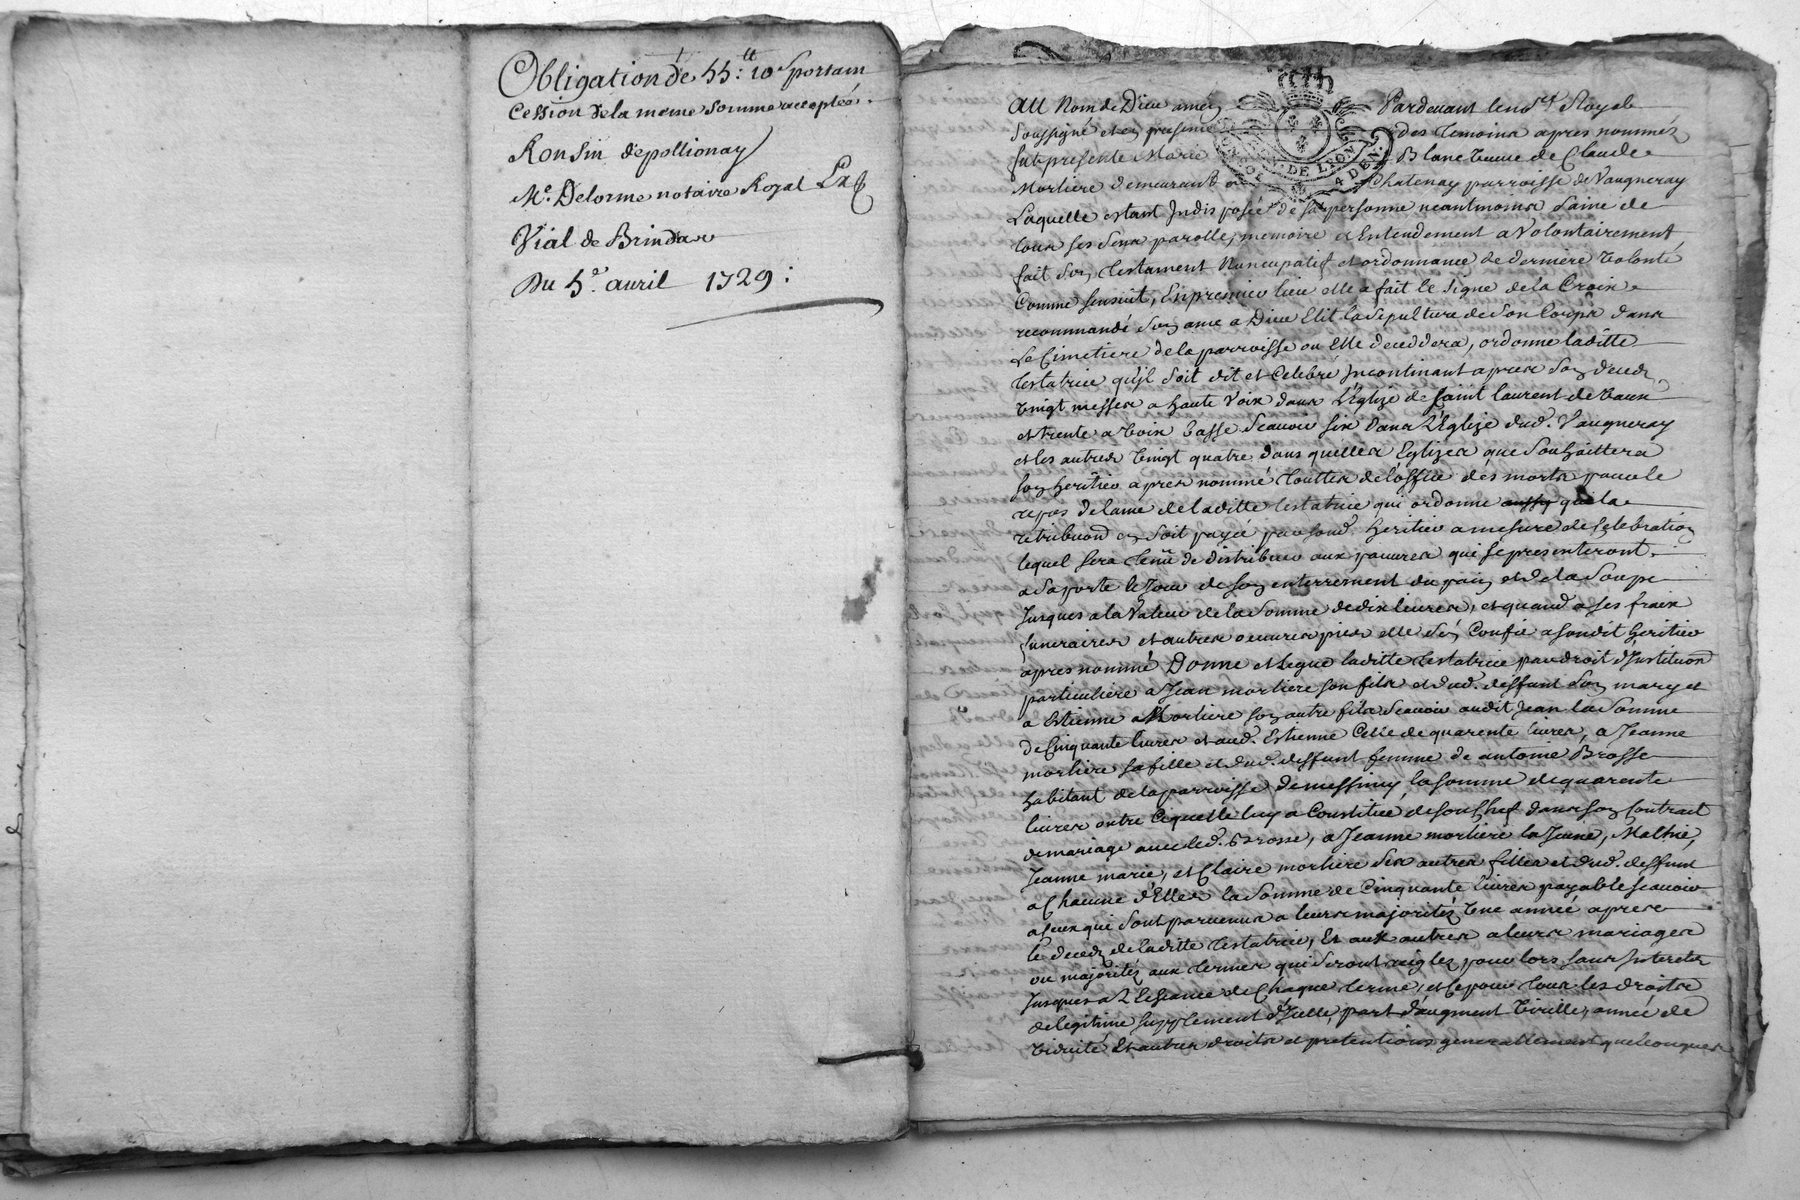 Obligation de 55:tt 10s portam
Cession de la meme Somme acceptée.
Ronsin d'epollionay
Me. Delorme notaire Royal
Vial de Brindas
Du 5e. auril 1729:
AU Nom de Dieu amen Pardeuant le nore. Royal
Soussigné et en presence des temoins apres nommés
fut presente Marie Blanc veuue de Claude
Morliere demeurant a Chatenay parroisse de Vaugneray
Laquelle estant Indisposée de sa personne neantmoins Saine de
tous ses sens parolle, memoire et Entendement a Volontairement
fait son testament Nuncupatif et ordonnance de derniere volonté
Comme sensuit, En premier lieu elle a fait le Signe de la Croix
recommandé son ame a Dieu Elit la Sepulture de Son Corps dans
Le Cimetiere de la parroisse ou Elle deceddera, ordonne laditte
testatrice qu'jl Soit dit et Celebré jncontinant apres son deceds
vingt messes a haute Voix dans L'Eglize de Saint laurent de vaux
et trente a voix basse Scauoir six dans L'Eglize dud. Vaugneray
et les autres vingt quatre dans quelles Eglizes que Souhaittera
son heritier apres nommé touttes de l'office des morts pour le
repos de lame de laditte testatrice qui ordonne aussy que la
retribuon en Soit payée par sond. heritier a mesure de Celebration
lequel sera tenu de distribuer aux pauures qui se presenteront
a Sa porte le Jour de son enterrement du pain et de la Soupe
Jusques a la Valeur de la Somme de dix liures, et quand a ses frais
funeraires et autres oeuures pies elle s'en Confie a sondit heritier
apres nommé Donne et Legue laditte testatrice par droit d'Instituon
particuliere a Jean morliere son fils et dud. deffunt son mary et
a Estienne Morliere son autre fils Scauoir audit Jean la Somme
de Cinquante liures et aud. Estienne Celle de quarente liures, a Jeanne
morliere sa fille et dud. deffunt femme de antoine Brosse
habitant de la parroisse de messimy la somme de quarente
liures outre Ce quelle luy a Constitué de son Chef dans son Contrat
de mariage auec led. Brosse, a Jeanne morliere la Jeune,
Jeanne marie, et Claire morliere ses autres filles et dud. deffunt
a Chacune d'Elles la Somme de Cinquante liures payable scauoir
a Ceux qui sont paruenus a leurs majorités vne année apres
le deceds de laditte testatrice, Et aux autres a leurs mariages
ou majorités aux termes qui seront reiglez pour lors sans Interets
Jusques a L'Echeance de Chaque terme, et Ce pour tous les droits
de legitime supplement d'Icelle, part d'augment virille, année de
viduité Et autres droits et pretentions generallement quelconques